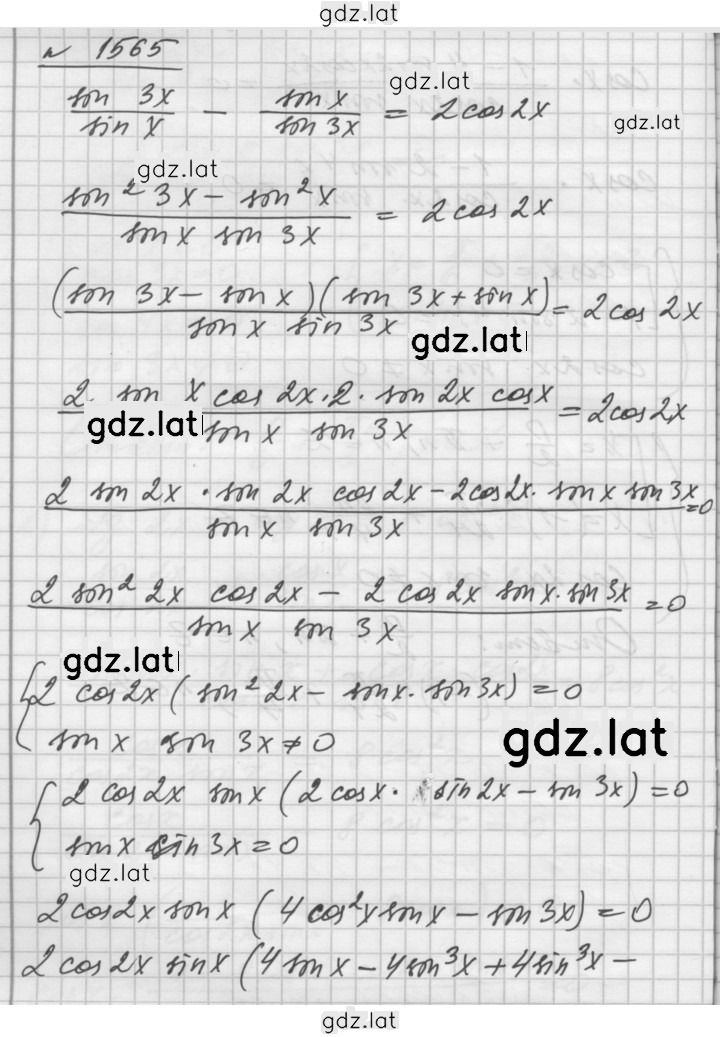 gdz.lat
№ 1565
sin 3x / sin x − sin x / sin 3x = 2cos2x
gdz.lat
gdz.lat
gdz.lat
(sin² 3x − sin² x) / (sin x sin 3x) = 2cos 2x
(sin 3x − sin x)(sin 3x + sin x) / (sin x sin 3x) = 2cos 2x
gdz.lat
2 · sin x cos 2x · 2 · sin 2x cos x / (sin x sin 3x) = 2cos2x
gdz.lat
(2 sin 2x · sin 2x cos2x − 2cos2x · sin x sin 3x) / (sin x sin 3x) = 0
(2 sin² 2x cos 2x − 2 cos 2x sin x · sin 3x) / (sin x sin 3x) = 0
gdz.lat
{ 2 cos2x (sin² 2x − sin x · sin 3x) = 0
sin x sin 3x ≠ 0
gdz.lat
{ 2 cos2x sin x (2 cos x · sin 2x − sin 3x) = 0
sin x sin 3x = 0
gdz.lat
2cos2x sin x (4cos²x sin x − sin 3x) = 0
2 cos 2x sin x (4 sin x − 4 sin³x + 4 sin³x −
gdz.lat